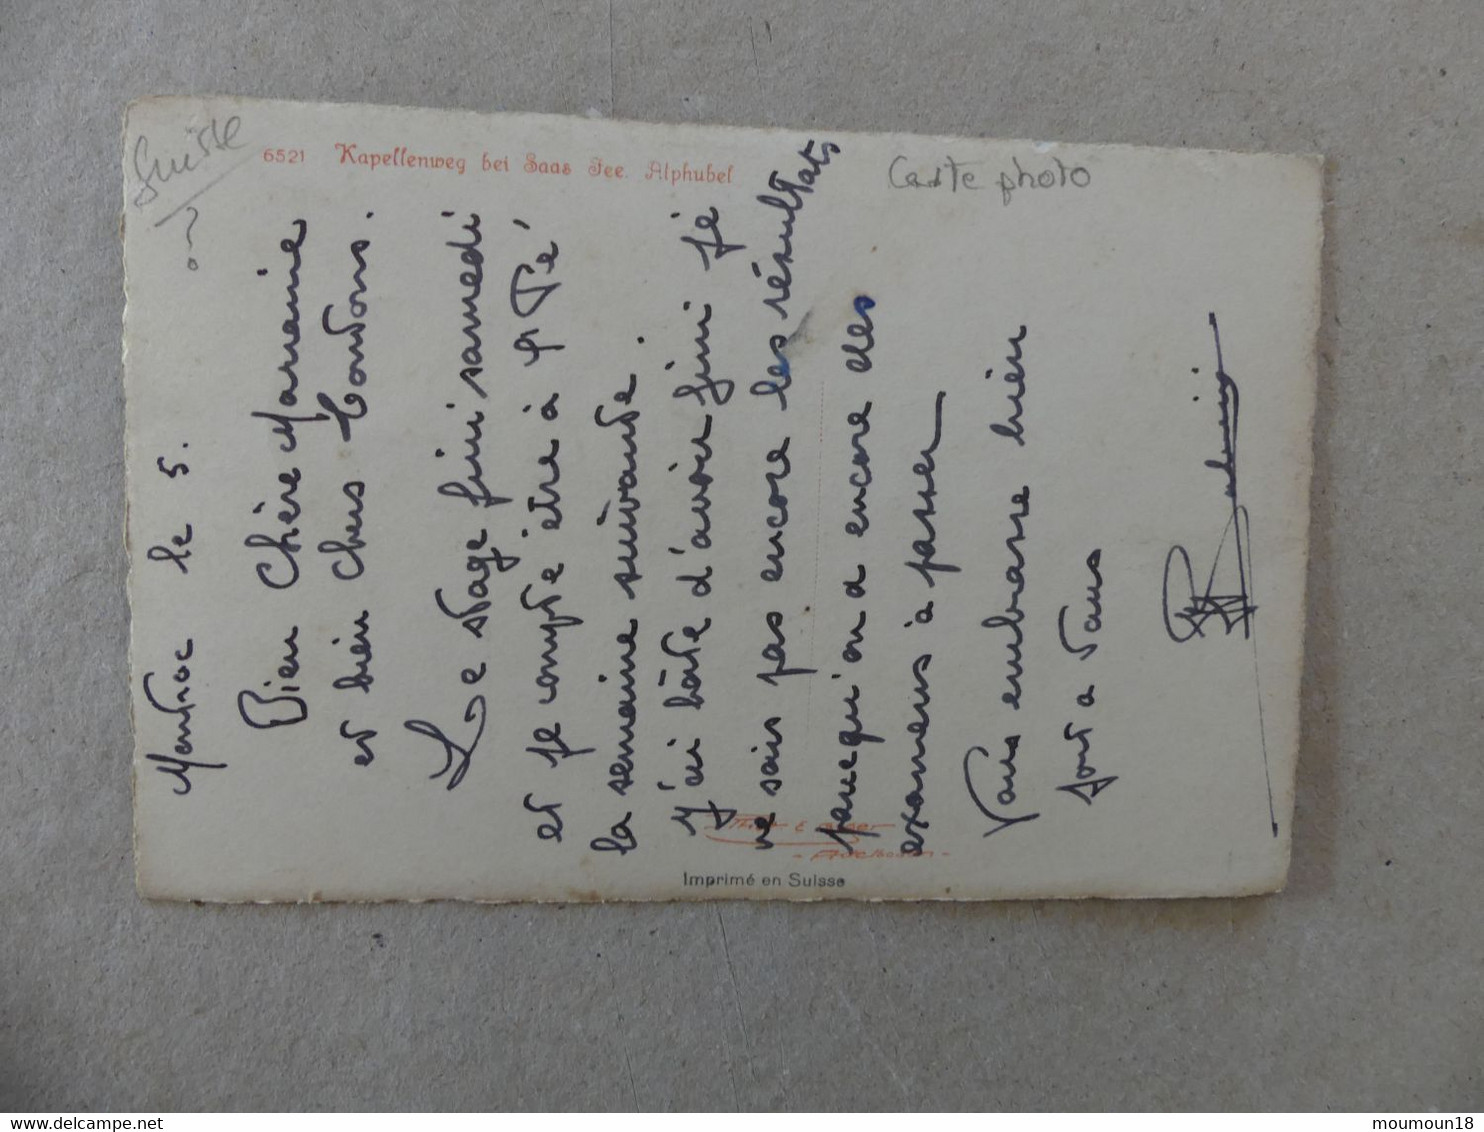 Suisse
?
6521 Kapellenweg bei Saas Fee. Alphubel
Carte photo
Montroc le 5.
Bien Chère Marraine
et bien chers Tontons.
Le stage fini samedi
et je compte être à St Pé
la semaine suivante.
J'ai hâte d'avoir fini je
ne sais pas encore les résultats
parcequ'on a encore des
examens à passer
Vous embrasse bien
fort à tous
Imprimé en Suisse
moumoun18